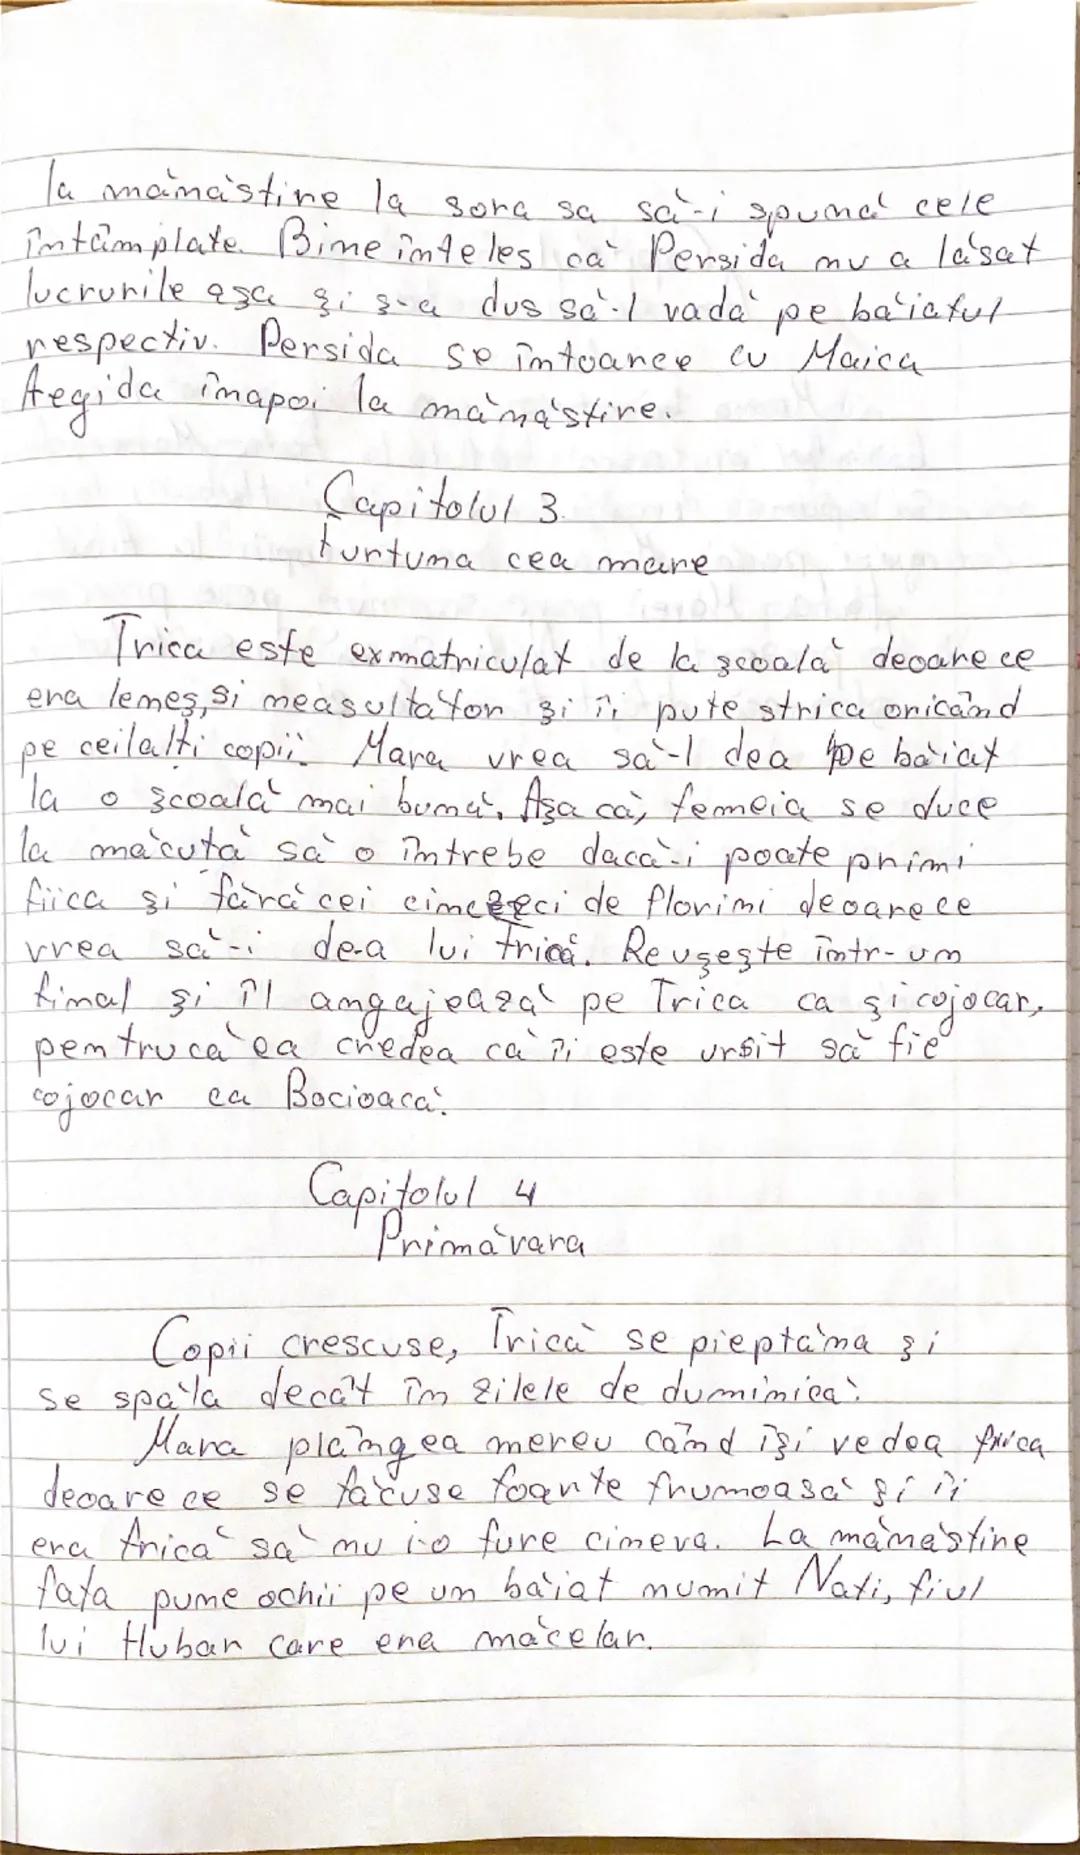 la mănăstire la sora sa să-i spună cele
întâmplate. Bine înteles că Persida nu a lăsat
lucrurile aşa şi s-a dus să-l vadă pe băiatul
respectiv. Persida se întoarce cu Maica
Aegida înapoi la mănăstire.
Capitolul 3.
Furtuna cea mare
Trica este exmatriculat de la şcoală deoarece
era leneş, si neasultător şi îi pute strica oricând
pe ceilalţi copii. Mara vrea să-l dea pe băiat
la o şcoală mai bună. Aşa că, femeia se duce
la măcuţă să o întrebe dacă-i poate primi
fiica şi fără cei cinzeci de florini deoarece
vrea să-i dea lui trică. Reuşeşte într-un
final şi îl angajează pe Trica ca şi cojocar,
pentru că ea credea că îi este ursit să fie
cojocar ca Bocioacă.
Capitolul 4
Primăvara
Copii crescuse, Trică se pieptăna şi
se spăla decât în zilele de duminică.
Mara plângea mereu când îşi vedea frica
deoarece se făcuse foarte frumoasă şi îi
era frică să nu i-o fure cineva. La mănăstire
fata pune ochii pe un băiat numit Naţi, fiul
lui Hubar care era măcelar.